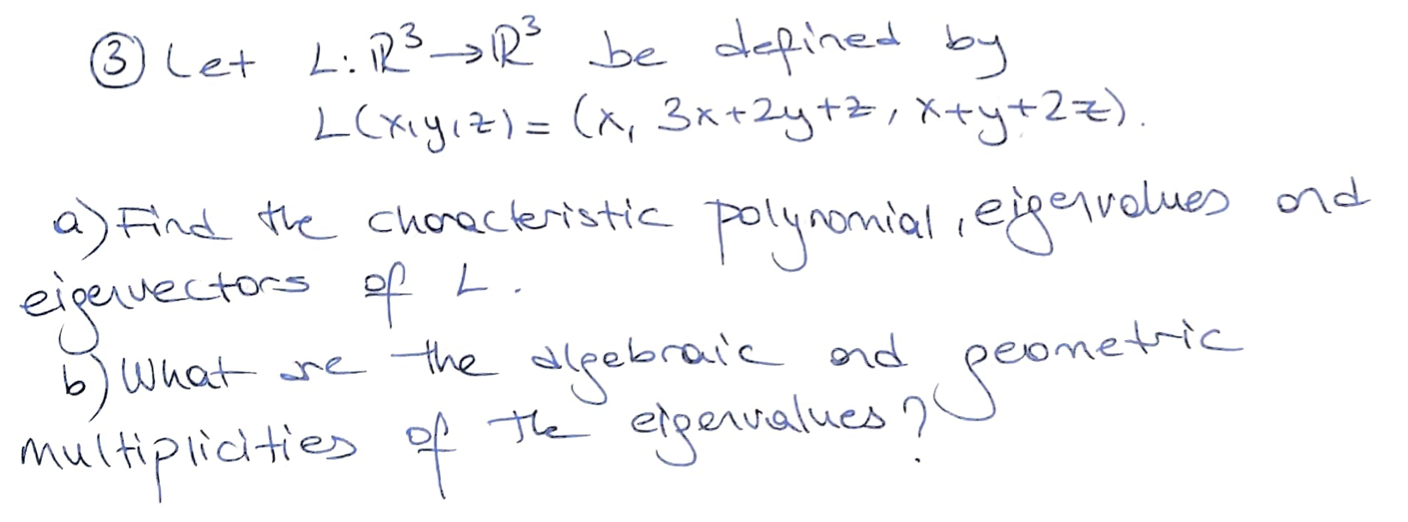 ③ Let L: ℝ³→ℝ³ be defined by
L(x,y,z) = (x, 3x+2y+z, x+y+2z).
a) Find the characteristic polynomial, eigenvalues and
eigenvectors of L.
b) What are the algebraic and geometric
multiplicities of the eigenvalues?